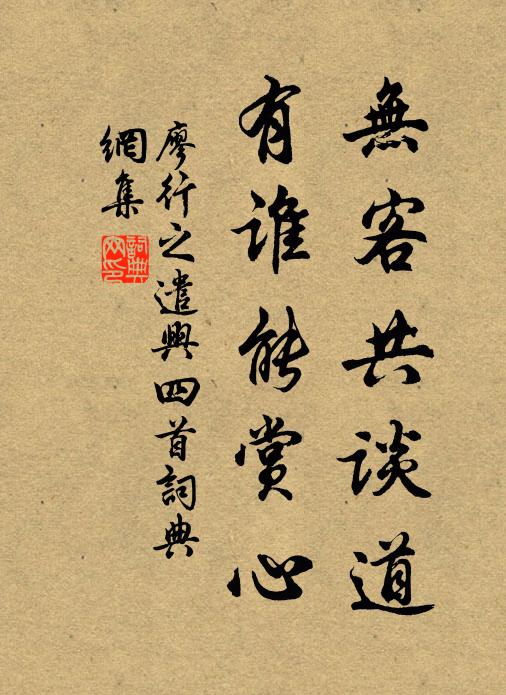 無客共談道
有誰能賞心
廖行之遣興四首詞典
網集
詞典网印